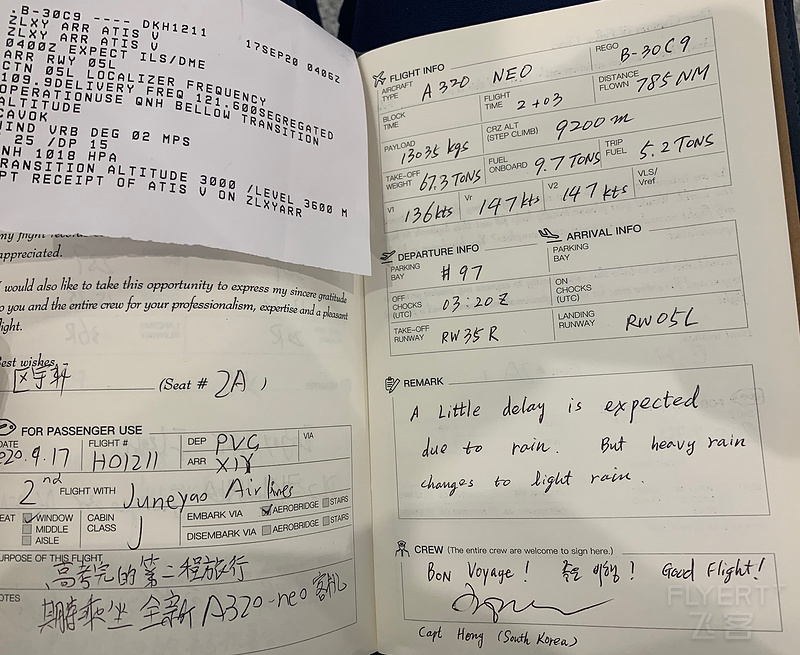 .B-30C9 ---- DKH1211
17SEP20 0406Z
ZLXY ARR ATIS V
ZLXY ARR ATIS V
0400Z EXPECT ILS/DME
ARR RWY 05L
CTN 05L LOCALIZER FREQUENCY
109.9DELIVERY FREQ 121.600SEGREGATED
OPERATIONUSE QNH BELLOW TRANSITION
ALTITUDE
CAVOK
WIND VRB DEG 02 MPS
25 /DP 15
QNH 1018 HPA
TRANSITION ALTITUDE 3000 /LEVEL 3600 M
PT RECEIPT OF ATIS V ON ZLXYARR
my flight
appreciated.
I would also like to take this opportunity to express my sincere gratitude
to you and the entire crew for your professionalism, expertise and a pleasant
flight.
Best wishes,
(Seat # 2A )
FOR PASSENGER USE
DATE
2020.9.17
FLIGHT #
HO1211
DEP PVG
VIA
ARR XIY
2nd FLIGHT WITH Juneyao Airlines
SEAT
WINDOW
MIDDLE
AISLE
CABIN CLASS
J
EMBARK VIA AEROBRIDGE STAIRS
DISEMBARK VIA AEROBRIDGE STAIRS
PURPOSE OF THIS FLIGHT
高考完的第二程旅行
NOTES
期待乘坐 全新 A320-neo 客机
FLIGHT INFO
AIRCRAFT TYPE A320 NEO
REGO B-30C9
BLOCK TIME
FLIGHT TIME 2+03
DISTANCE FLOWN 785 NM
PAYLOAD 13035 kgs
CRZ ALT (STEP CLIMB) 9200 m
TAKE-OFF WEIGHT 67.3 TONS
FUEL ONBOARD 9.7 TONS
TRIP FUEL 5.2 TONS
V1 136 kts
Vr 147 kts
V2 147 kts
VLS/ Vref
DEPARTURE INFO
ARRIVAL INFO
PARKING BAY #97
PARKING BAY
OFF CHOCKS (UTC) 03:20Z
ON CHOCKS (UTC)
TAKE-OFF RUNWAY RW35R
LANDING RUNWAY RW05L
REMARK
A Little delay is expected
due to rain. But heavy rain
changes to light rain.
CREW (The entire crew are welcome to sign here.)
Bon Voyage! 좋은 여행! Good Flight!
Capt Hong (South Korea)
FLYERT
飞客